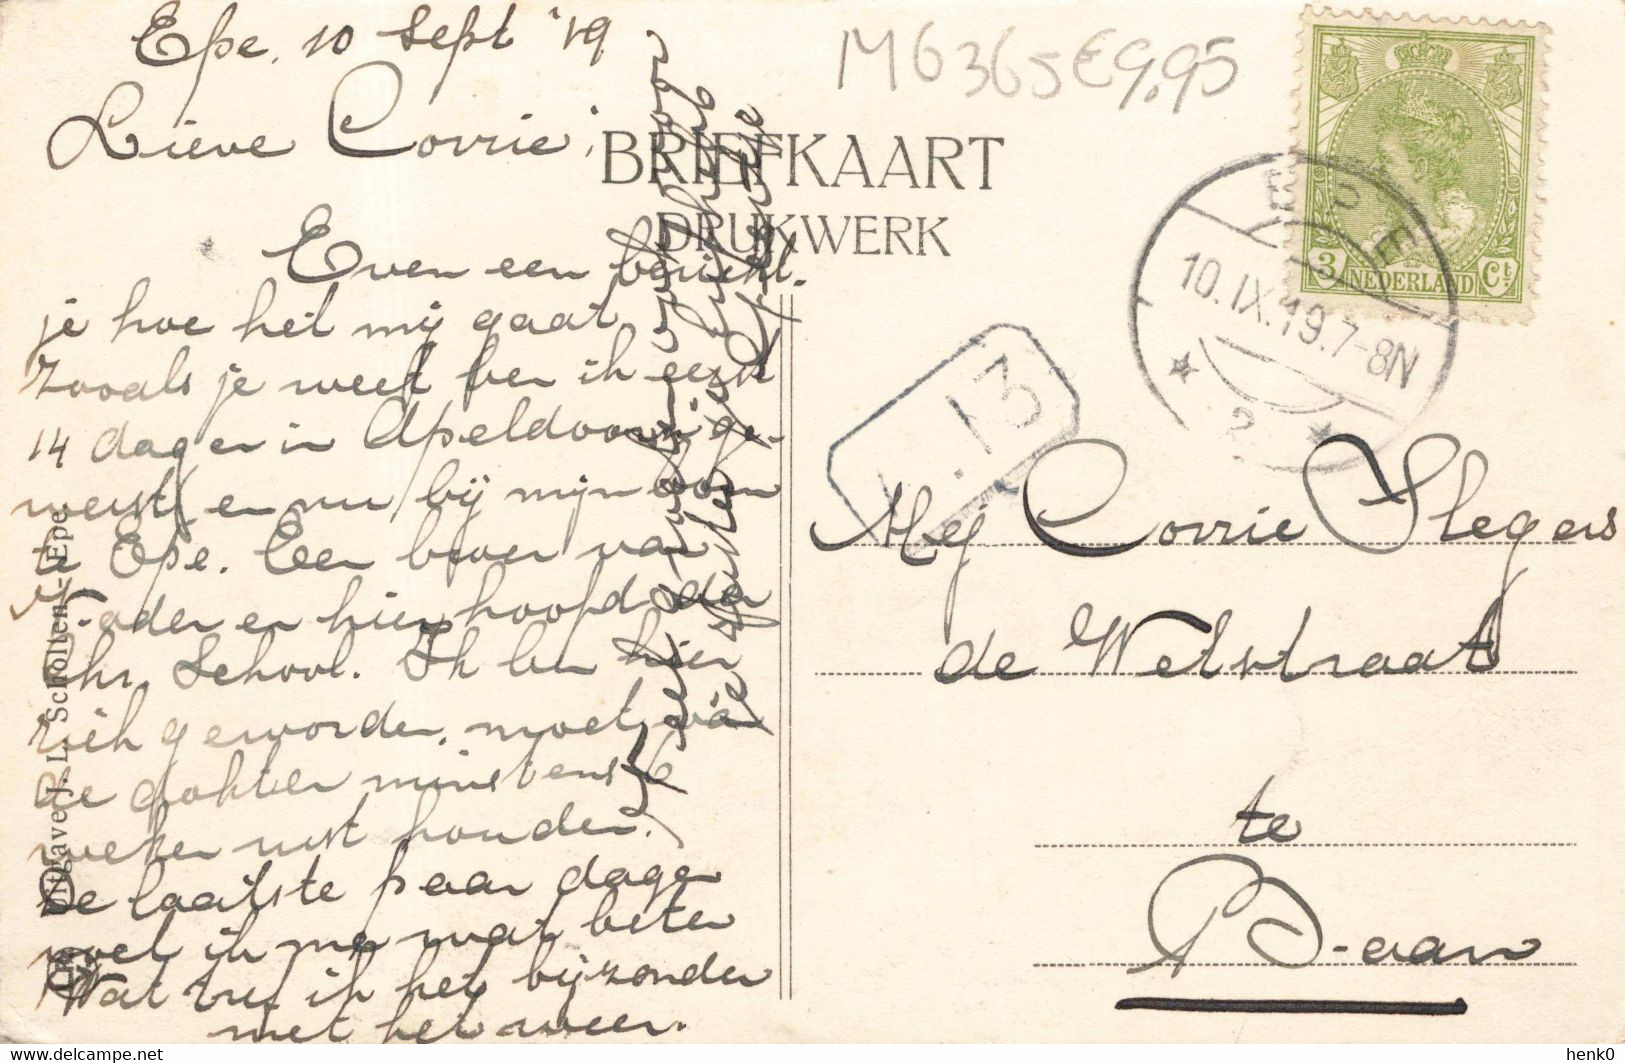 Epe, 10 Sept '19
Lieve Corrie,
Even een bericht-
je hoe het mij gaat
Zooals je weet ben ik eerst
14 dagen in Apeldoorn ge-
weest en nu bij mijn oom
te Epe. Een broer van
Vader en hier hoofd der
Chr. School. Ik ben hier
ziek geworden, moet van
de dokter minstens 6
weken rust houden.
De laatste paar dagen
voel ik me wat beter
Wat tref ik het bijzonder
met het weer.
M6365 €9,95
BRIEFKAART
DRUKWERK
3 NEDERLAND Ct.
EPE
10.IX.19.7-8N
2
13
Mej Corrie Slegers
de Wetstraat
te
Uitgave J. L. Scholten-Epe
henk0